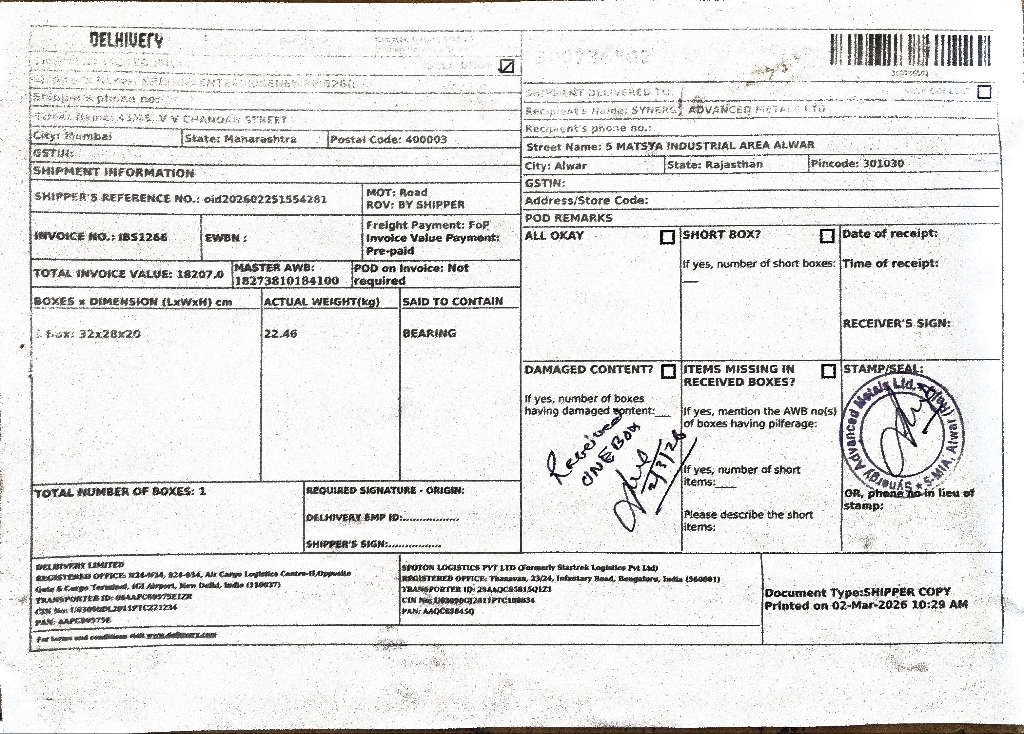 DELHIVERY
300736802
SHIPMENT DELIVERED TO:
Shipper's phone no:
Recipient's Name: SYNERGY ADVANCED METALS LTD
Recipient's phone no.:
Street Name: 43/45, V V CHANDAN STREET
City: Mumbai State: Maharashtra Postal Code: 400003
Street Name: 5 MATSYA INDUSTRIAL AREA ALWAR
City: Alwar State: Rajasthan Pincode: 301030
GSTIN:
GSTIN:
SHIPMENT INFORMATION
Address/Store Code:
SHIPPER'S REFERENCE NO.: oid202602251554281
MOT: Road
ROV: BY SHIPPER
INVOICE NO.: IBS1266
EWBN :
Freight Payment: FoP
Invoice Value Payment:
Pre-paid
TOTAL INVOICE VALUE: 18207.0
MASTER AWB:
18273810184100
POD on Invoice: Not
required
BOXES x DIMENSION (LxWxH) cm
ACTUAL WEIGHT(kg)
SAID TO CONTAIN
1 box: 32x28x20
22.46
BEARING
TOTAL NUMBER OF BOXES: 1
REQUIRED SIGNATURE - ORIGIN:
DELHIVERY EMP ID:................
SHIPPER'S SIGN:...............
POD REMARKS
ALL OKAY
SHORT BOX?
If yes, number of short boxes:
__
Date of receipt:
Time of receipt:
RECEIVER'S SIGN:
DAMAGED CONTENT?
If yes, number of boxes
having damaged content:___
Received
ONE BOX
2/3/26
ITEMS MISSING IN
RECEIVED BOXES?
If yes, mention the AWB no(s)
of boxes having pilferage:
If yes, number of short
items:____
Please describe the short
items:
STAMP/SEAL:
Synergy Advanced Metals Ltd. ★ 5-MIA, Alwar (Raj.)
OR, phone no in lieu of
stamp:
DELHIVERY LIMITED
REGISTERED OFFICE: N24-N34, S24-S34, Air Cargo Logistics Centre-II,Opposite
Gate 6 Cargo Terminal, IGI Airport, New Delhi, India (110037)
TRANSPORTER ID: 06AAPCS9575E1ZR
CIN No: U63090DL2011PTC221234
PAN: AAPCS9575E
SPOTON LOGISTICS PVT LTD (Formerly Startrek Logistics Pvt Ltd)
REGISTERED OFFICE: Thanavan, 23/24, Infantary Road, Bengaluru, India (560001)
PAN: AAQCS5845Q
For terms and conditions visit www.delhivery.com
Document Type:SHIPPER COPY
Printed on 02-Mar-2026 10:29 AM